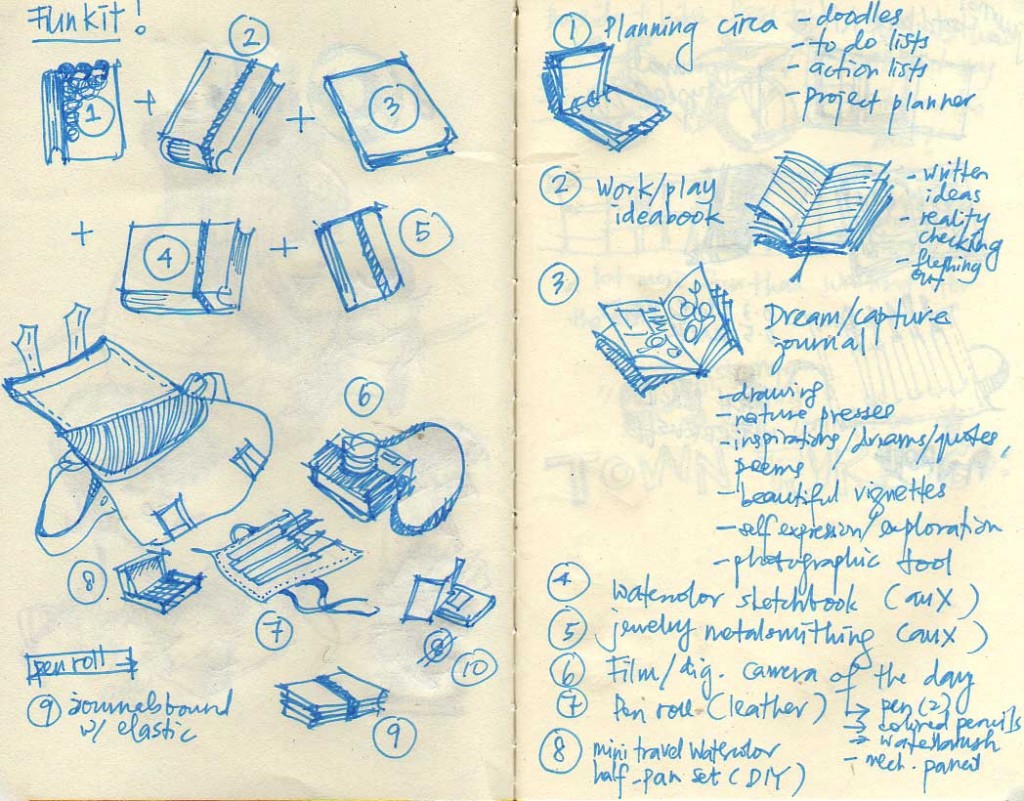 Fun kit!
②
① + + ③
+ ④ + ⑤
⑥
⑧
⑦
8
⑩
pen roll
⑨ journals bound
w/ elastic
⑨
① Planning circa - doodles
- to do lists
- action lists
- project planner
② work/play
ideabook
- written
ideas
- reality
checking
- fleshing
out
③
Dream/capture
journal
- drawing
- nature presses
- inspirations/dreams/quotes,
poems
- beautiful vignettes
- self expression/exploration
- photographic tool
④ watercolor sketchbook (aux)
⑤ jewelry metalsmithing (aux)
⑥ Film/dig. camera of the day
⑦ Pen roll (leather)
→ pen (2)
→ colored pencils
→ waterbrush
- mech. pencil
⑧ mini travel watercolor
half-pan set (DIY)